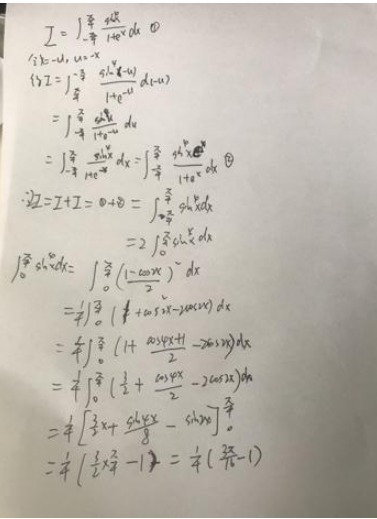 I = ∫_{-π/4}^{π/4} sin⁴x/(1+eˣ) dx ①
令x=-u, u=-x
得I = ∫_{π/4}^{-π/4} sin⁴(-u)/(1+e^{-u}) d(-u)
= ∫_{-π/4}^{π/4} sin⁴u/(1+e^{-u}) du
= ∫_{-π/4}^{π/4} sin⁴x/(1+e^{-x}) dx = ∫_{-π/4}^{π/4} sin⁴x eˣ/(1+eˣ) dx ②
∴2I = I+I = ①+② = ∫_{-π/4}^{π/4} sin⁴x dx
= 2∫_0^{π/4} sin⁴x dx
∫_0^{π/4} sin⁴x dx = ∫_0^{π/4} ((1-cos2x)/2)² dx
= 1/4 ∫_0^{π/4} (1+cos²2x-2cos2x) dx
= 1/4 ∫_0^{π/4} (1+ (cos4x+1)/2 -2cos2x) dx
= 1/4 ∫_0^{π/4} (3/2 + cos4x/2 - 2cos2x) dx
= 1/4 [3/2 x + sin4x/8 - sin2x]_0^{π/4}
= 1/4 (3/2 × π/4 - 1) = 1/4 (